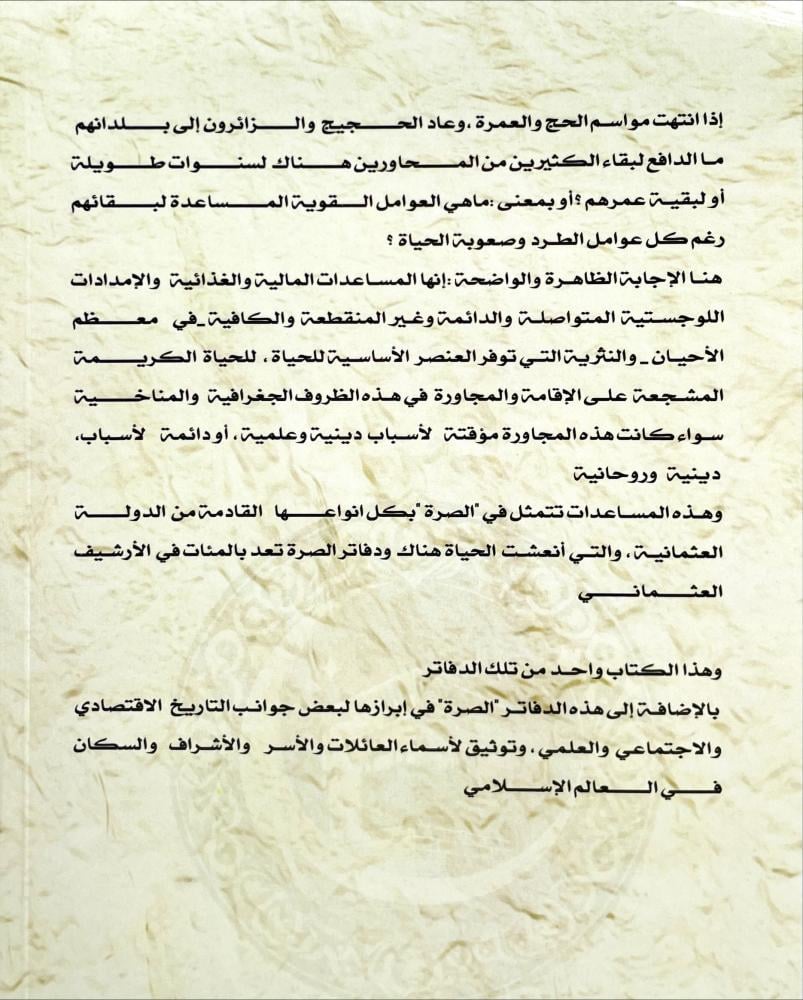 إذا انتهت مواسم الحج والعمرة ،وعاد الحجيج والزائرون إلى بلدانهم
ما الدافع لبقاء الكثيرين من المحاورين هناك لسنوات طويلة
أو لبقية عمرهم ؟أو بمعنى :ماهي العوامل القوية المساعدة لبقائهم
رغم كل عوامل الطرد وصعوبة الحياة ؟
هنا الإجابة الظاهرة والواضحة :إنها المساعدات المالية والغذائية والإمدادات
اللوجستية المتواصلة والدائمة وغير المنقطعة والكافية _في معظم
الأحيان _ والنثرية التي توفر العنصر الأساسية للحياة ، للحياة الكريمة
المشجعة على الإقامة والمجاورة في هذه الظروف الجغرافية والمناخية
سواء كانت هذه المجاورة مؤقتة لأسباب دينية وعلمية ، أو دائمة لأسباب،
دينية وروحانية
وهذه المساعدات تتمثل في "الصرة "بكل انواعها القادمة من الدولة
العثمانية ، والتي أنعشت الحياة هناك ودفاتر الصرة تعد بالمئات في الأرشيف
العثماني
وهذا الكتاب واحد من تلك الدفاتر
بالإضافة إلى هذه الدفاتر "الصرة" في إبرازها لبعض جوانب التاريخ الاقتصادي
والاجتماعي والعلمي ، وتوثيق لأسماء العائلات والأسر والأشراف والسكان
في العالم الإسلامي